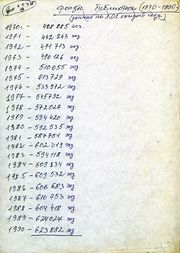 Фонды библиотеки (1970-1990)
(данные на конец года)
1970 - 408 885 экз.
1971 - 442 243 экз
1972 - 471 713 экз
1973 - 490 126 экз
1974 - 510 055 экз
1975 - 513 729 экз
1976 - 513 572 экз
1977 - 515 732 экз
1978 - 572 027 экз
1979 - 594 420 экз
1980 - 592 535 экз
1981 - 587 701 экз
1982 - 602 319 экз
1983 - 594 118 экз
1984 - 609 834 экз
1985 - 609 532 экз
1986 - 606 683 экз
1987 - 610 753 экз
1988 - 604 418 экз
1989 - 624 024 экз
1990 - 623 882 экз